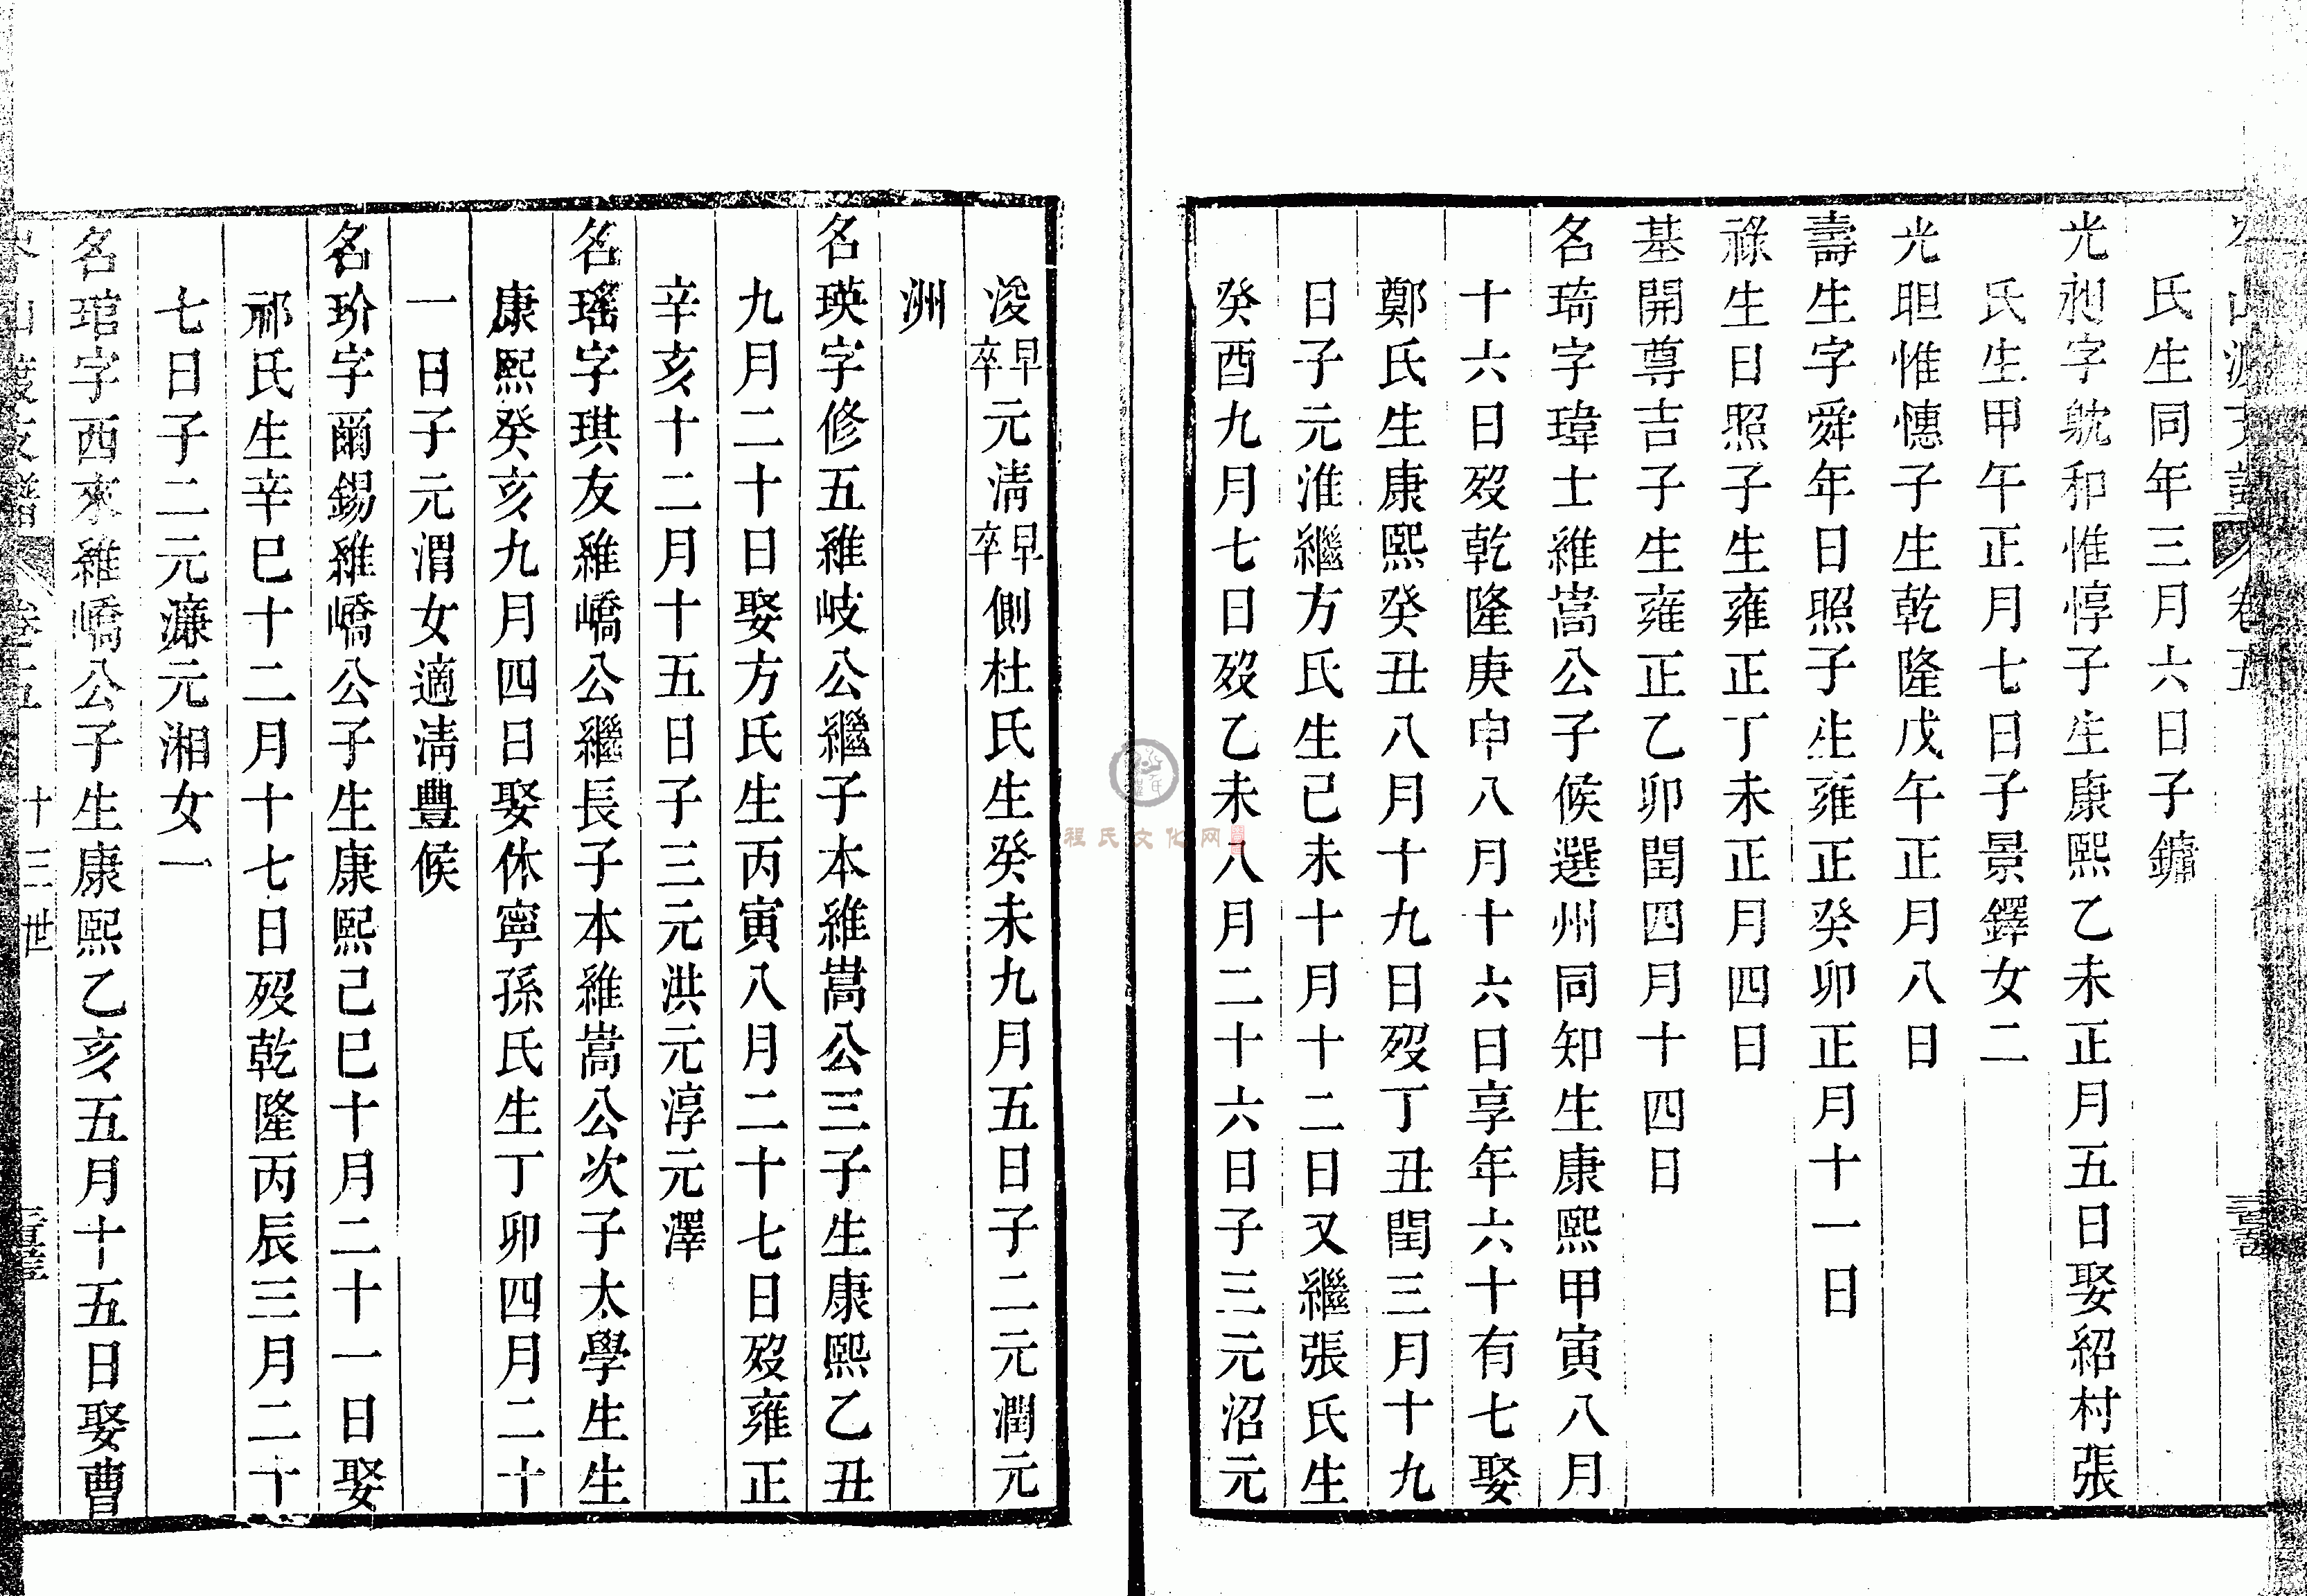 卷五
氏生同年三月六日子鏞
光昶字虩和惟惇子生康熙乙未正月五日娶紹村張
氏生甲午正月七日子景鐸女二
光耼惟憓子生乾隆戊午正月八日
壽生字舜年日照子生雍正癸卯正月十一日
祿生日照子生雍正丁未正月四日
基開尊吉子生雍正乙卯閏四月十四日
名琦字瑋士維嵩公子候選州同知生康熙甲寅八月
十六日歿乾隆庚申八月十六日享年六十有七娶
鄭氏生康熙癸丑八月十九日歿丁丑閏三月十九
日子元淮繼方氏生己未十月十二日又繼張氏生
癸酉九月七日歿乙未八月二十六日子三元沼元
浚早卒元清早卒側杜氏生癸未九月五日子二元潤元
洲
名瑛字修五維岐公繼子本維嵩公三子生康熙乙丑
九月二十日娶方氏生丙寅八月二十七日歿雍正
辛亥十二月十五日子三元洪元淳元澤
名瑤字琪友維嶠公繼長子本維嵩公次子太學生生
康熙癸亥九月四日娶休寧孫氏生丁卯四月二十
一日子元渭女適清豐候
名玠字爾錫維嶠公子生康熙己巳十月二十一日娶
祁氏生辛巳十二月十七日歿乾隆丙辰三月二十
七日子二元濂元湘女一
名琯字西來維嶠公子生康熙乙亥五月十五日娶曹
卷五 十三世
程氏文化网